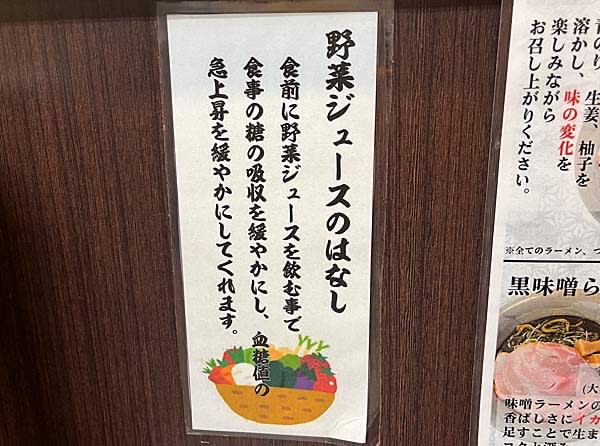 野菜ジュースのはなし
食前に野菜ジュースを飲む事で
食事の糖の吸収を緩やかにし、血糖値の
急上昇を緩やかにしてくれます。
青のり、生姜、柚子を
溶かし、味の変化を
楽しみながら
お召し上がりください。
※全てのラーメン、つ
黒味噌ら
(大
味噌ラーメンの
香ばしさにイカ
足すことで生ま